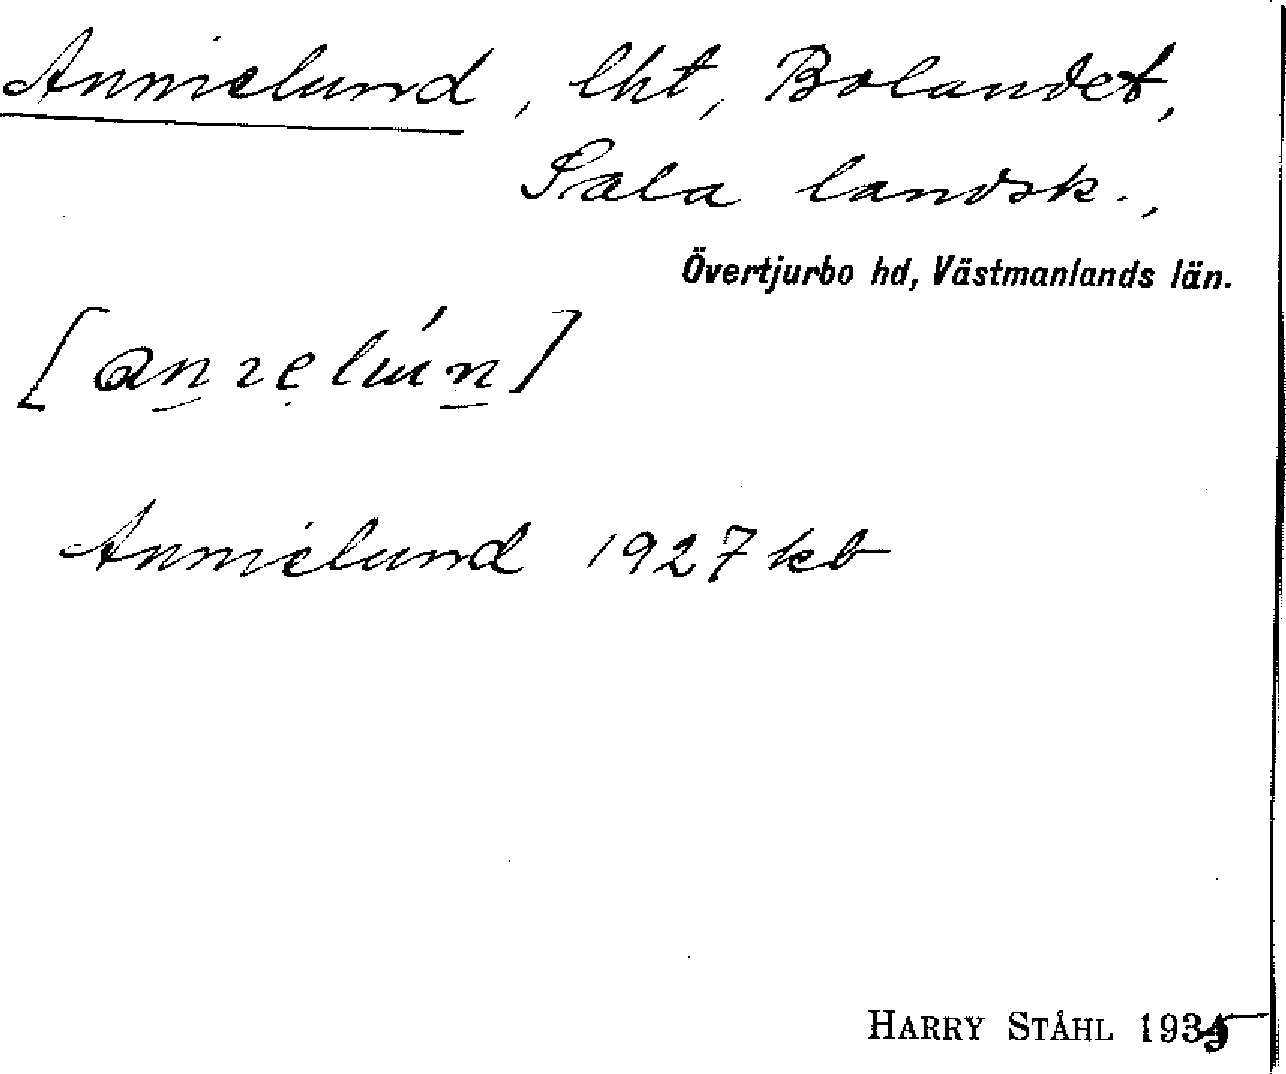 Annielund, lht, Bolandet,
Sala landsk.,
Övertjurbo hd, Västmanlands län.
Annielund 1927 kb
HARRY STÅHL 1935